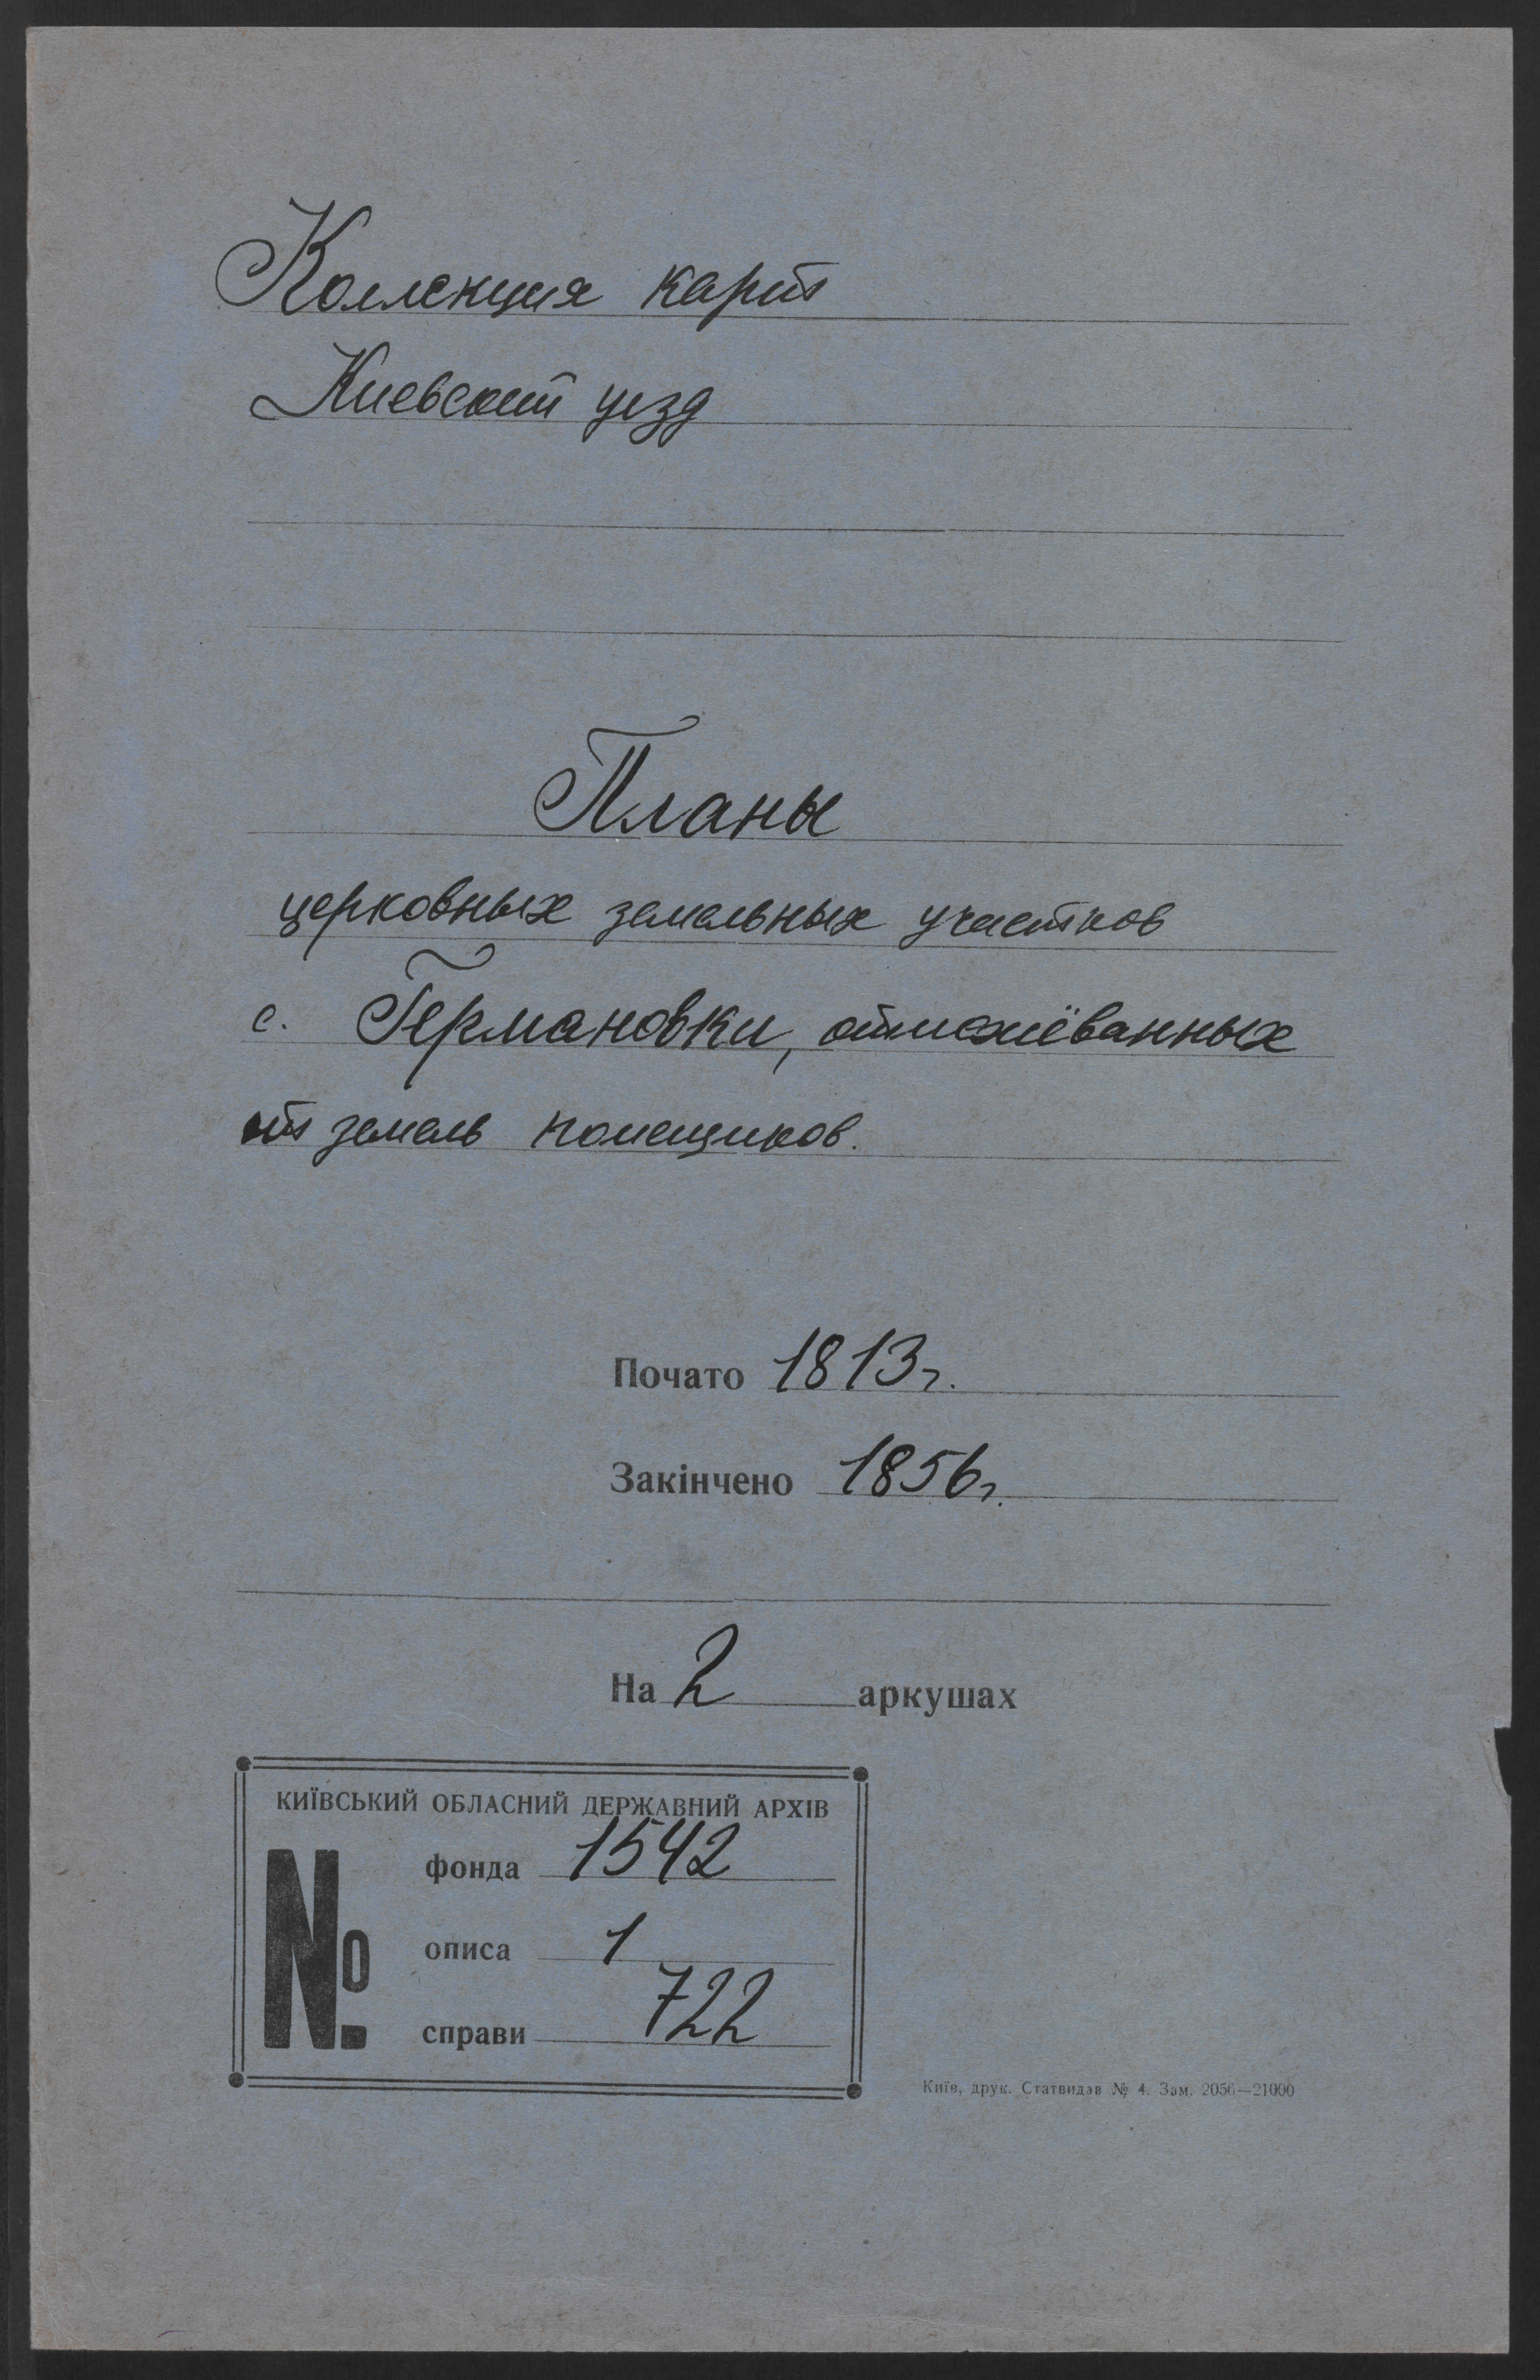 Коллекция карт
Киевский уезд
Планы
церковных земельных участков
с. Германовки, отмежёванных
от земель помещиков.
Почато 1813г.
Закінчено 1856г.
На 2 аркушах
КИЇВСЬКИЙ ОБЛАСНИЙ ДЕРЖАВНИЙ АРХІВ
№
фонда 1542
описа 1
справи 722
Київ, друк. Статвидав № 4. Зам. 2056—21000